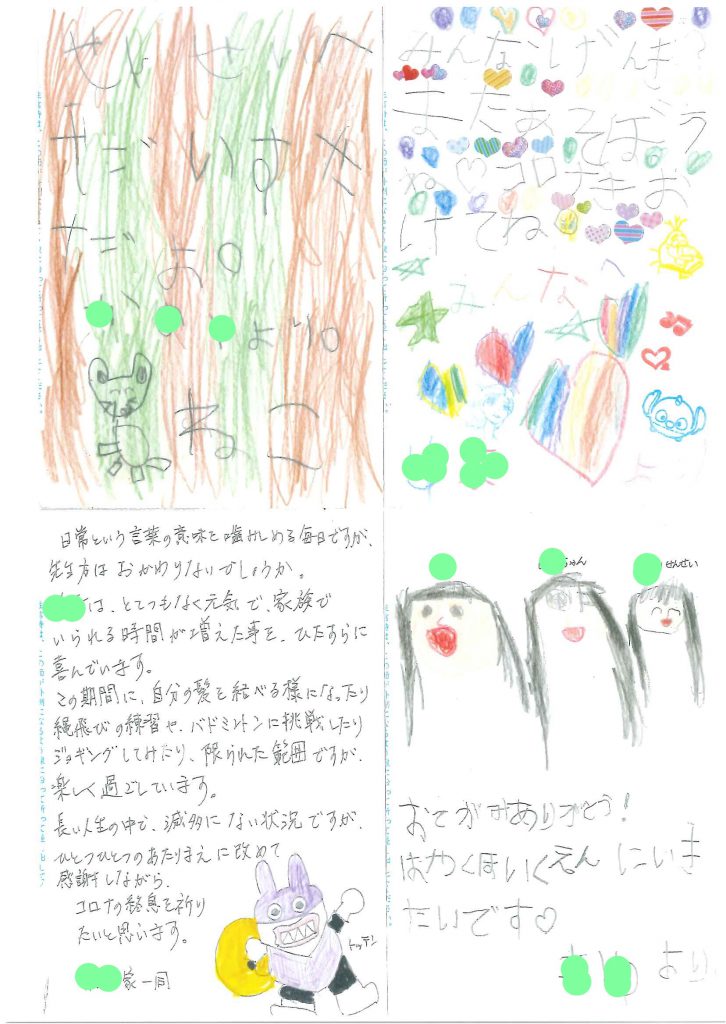 せんせいへ
だいすき
だよ。
より。
ねこ
みんなしげんき?
またあそぼう
ね♡コロナきお
けてね
みんなへ
より
日常という言葉の意味を噛みしめる毎日ですが、
先生方はおかわりないでしょうか。
は、とてつもなく元気で、家族で
いられる時間が増えた事を、ひたすらに
喜んでいます。
この期間に、自分の髪を結べる様になったり
縄飛びの練習や、バドミントンに挑戦したり
ジョギングしてみたり、限られた範囲ですが、
楽しく過ごしています。
長い人生の中で、滅多にない状況ですが、
ひとつひとつのあたりまえに改めて
感謝しながら、
コロナの終息を祈り
たいと思います。
家一同
トッテン
ちゃん
せんせい
おてがみありがとう!
はやくほいくえんにいき
たいです♡
より